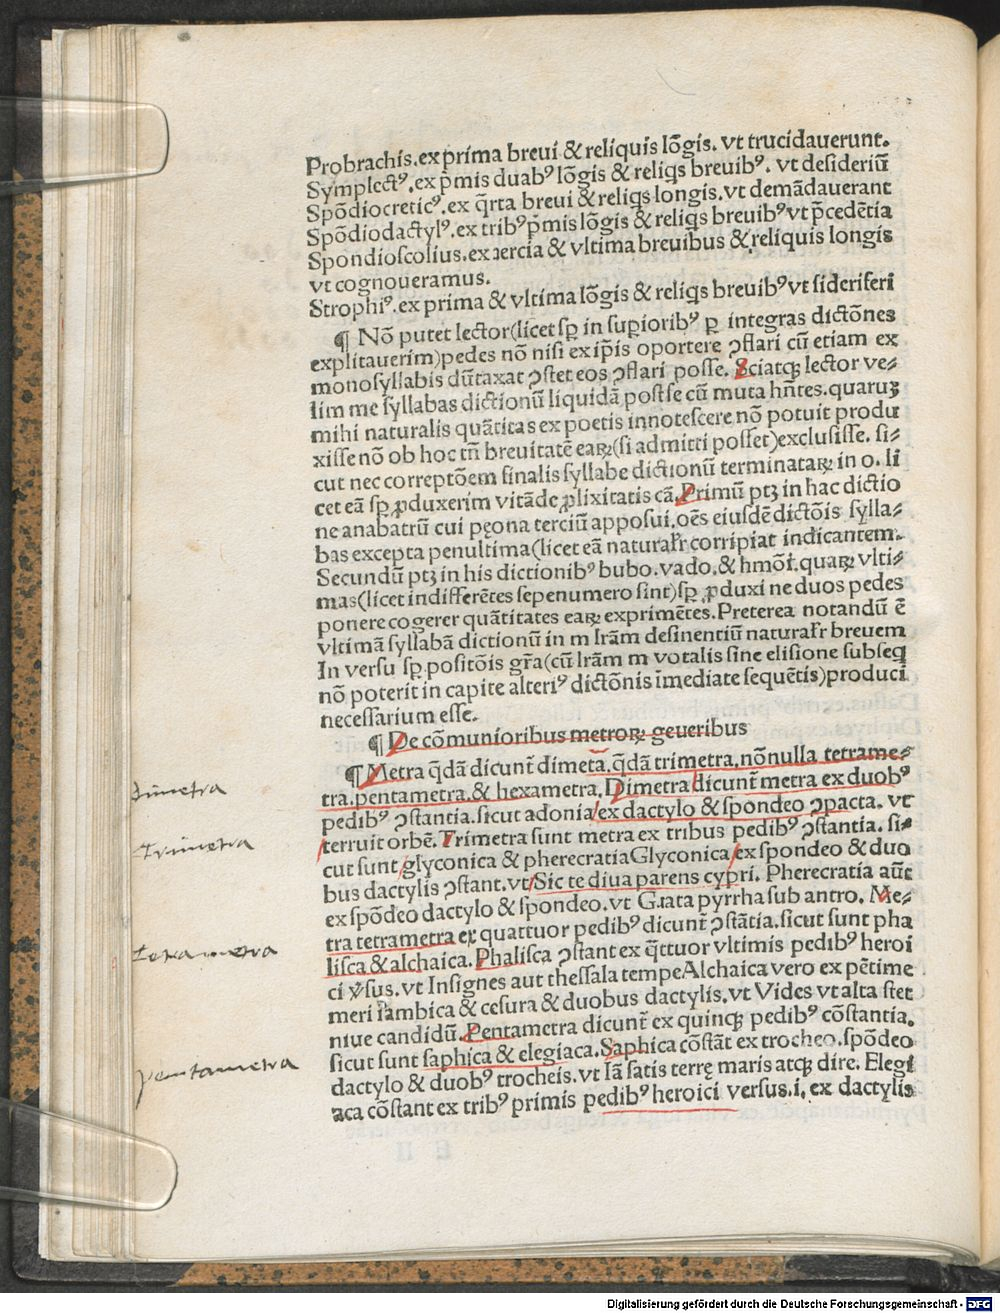 Probrachis.ex prima breui & reliquis lõgis. vt trucidauerunt.
Symplectꝰ.ex p̄mis duabꝰ lõgis & reliq̄s breuibꝰ. vt desideriũ
Spõdiocreticꝰ.ex q̄rta breui & reliq̄s longis.vt demãdauerant
Spõdiodactylꝰ.ex tribꝰ p̄mis lõgis & reliq̄s breuibꝰ vt p̄cedẽtia
Spondioscolius.ex tercia & vltima breuibus & reliquis longis
vt cognoueramus.
Strophiꝰ.ex prima & vltima lõgis & reliq̄s breuibꝰ vt sideriferi
¶ Nõ putet lector(licet sꝑ in suꝑioribꝰ ꝑ integras dictõnes
explitauerim)pedes nõ nisi ex ip̄is oportere ꝯflari cũ etiam ex
monosyllabis dũtaxat ꝯstet eos ꝯflari posse. Sciatqꝫ lector ve⸗
lim me syllabas dictionũ liquidã post se cũ muta hñtes.quaruꝫ
mihi naturalis quãtitas ex poetis innotescere nõ potuit produ
xisse nõ ob hoc tñ breuitatẽ eaꝝ(si admitti posset)exclusisse. si⸗
cut nec correptõem finalis syllabe dictionũ terminataꝝ in o. li
cet eã sꝑ ꝓduxerim vitãde ꝓlixitatis cã.Primũ ptꝫ in hac dictio
ne anabatrũ cui pęona terciũ apposui.oẽs eiusdẽ dictõis sylla⸗
bas excepta penultima(licet eã naturalr̃ corripiat indicantem.
Secundũ ptꝫ in his dictionibꝰ bubo.vado.& hmõi.quaꝝ vlti⸗
mas(licet indifferẽtes sepenumero sint)sꝑ ꝓduxi ne duos pedes
ponere cogerer quãtitates eaꝝ exprimẽtes.Preterea notandũ ẽ
vltimã syllabã dictionũ in m lr̃am desinentiũ naturalr̃ breuem
In versu sꝑ positõis gr̃a(cũ lr̃am m votalis sine elisione subseq
nõ poterit in capite alteriꝰ dictõnis īmediate sequẽtis)produci
necessarium esse.
¶ De cõmunioribus metroꝝ geueribus
¶ Metra q̄dã dicunt̃ dimeta.q̄dã trimetra.nõnulla tetrame⸗
tra.pentametra.& hexametra. Dimetra dicunt̃ metra ex duobꝰ
pedibꝰ ꝯstantia.sicut adonia ex dactylo & spondeo ꝯpacta. vt
terruit orbẽ. Trimetra sunt metra ex tribus pedibꝰ ꝯstantia. si⸗
cut sunt glyconica & pherecratia Glyconica ex spondeo & duo
bus dactylis ꝯstant.vt Sic te diua parens cypri. Pherecratia aũt
ex spõdeo dactylo & spondeo.vt Grata pyrrha sub antro. Me⸗
tra tetrametra ex quattuor pedibꝰ dicunt̃ ꝯstãtia.sicut sunt pha
lisca & alchaica. Phalisca ꝯstant ex q̄ttuor vltimis pedibꝰ heroi
ci ṽsus.vt Insignes aut thessala tempe Alchaica vero ex pẽtime
meri iãmbica & cesura & duobus dactylis.vt Vides vt alta stet
niue candidũ.Pentametra dicunt̃ ex quinqꝫ pedibꝰ cõstantia.
sicut sunt saphica & elegiaca.Saphica cõstãt ex trocheo.spõdeo
dactylo & duobꝰ trocheis.vt Iã satis terrę maris atqꝫ dire. Elegi
aca cõstant ex tribꝰ primis pedibꝰ heroici versus.i. ex dactylis
dimetra
Trimetra
tetrametra
pentametra
Digitalisierung gefördert durch die Deutsche Forschungsgemeinschaft - DFG